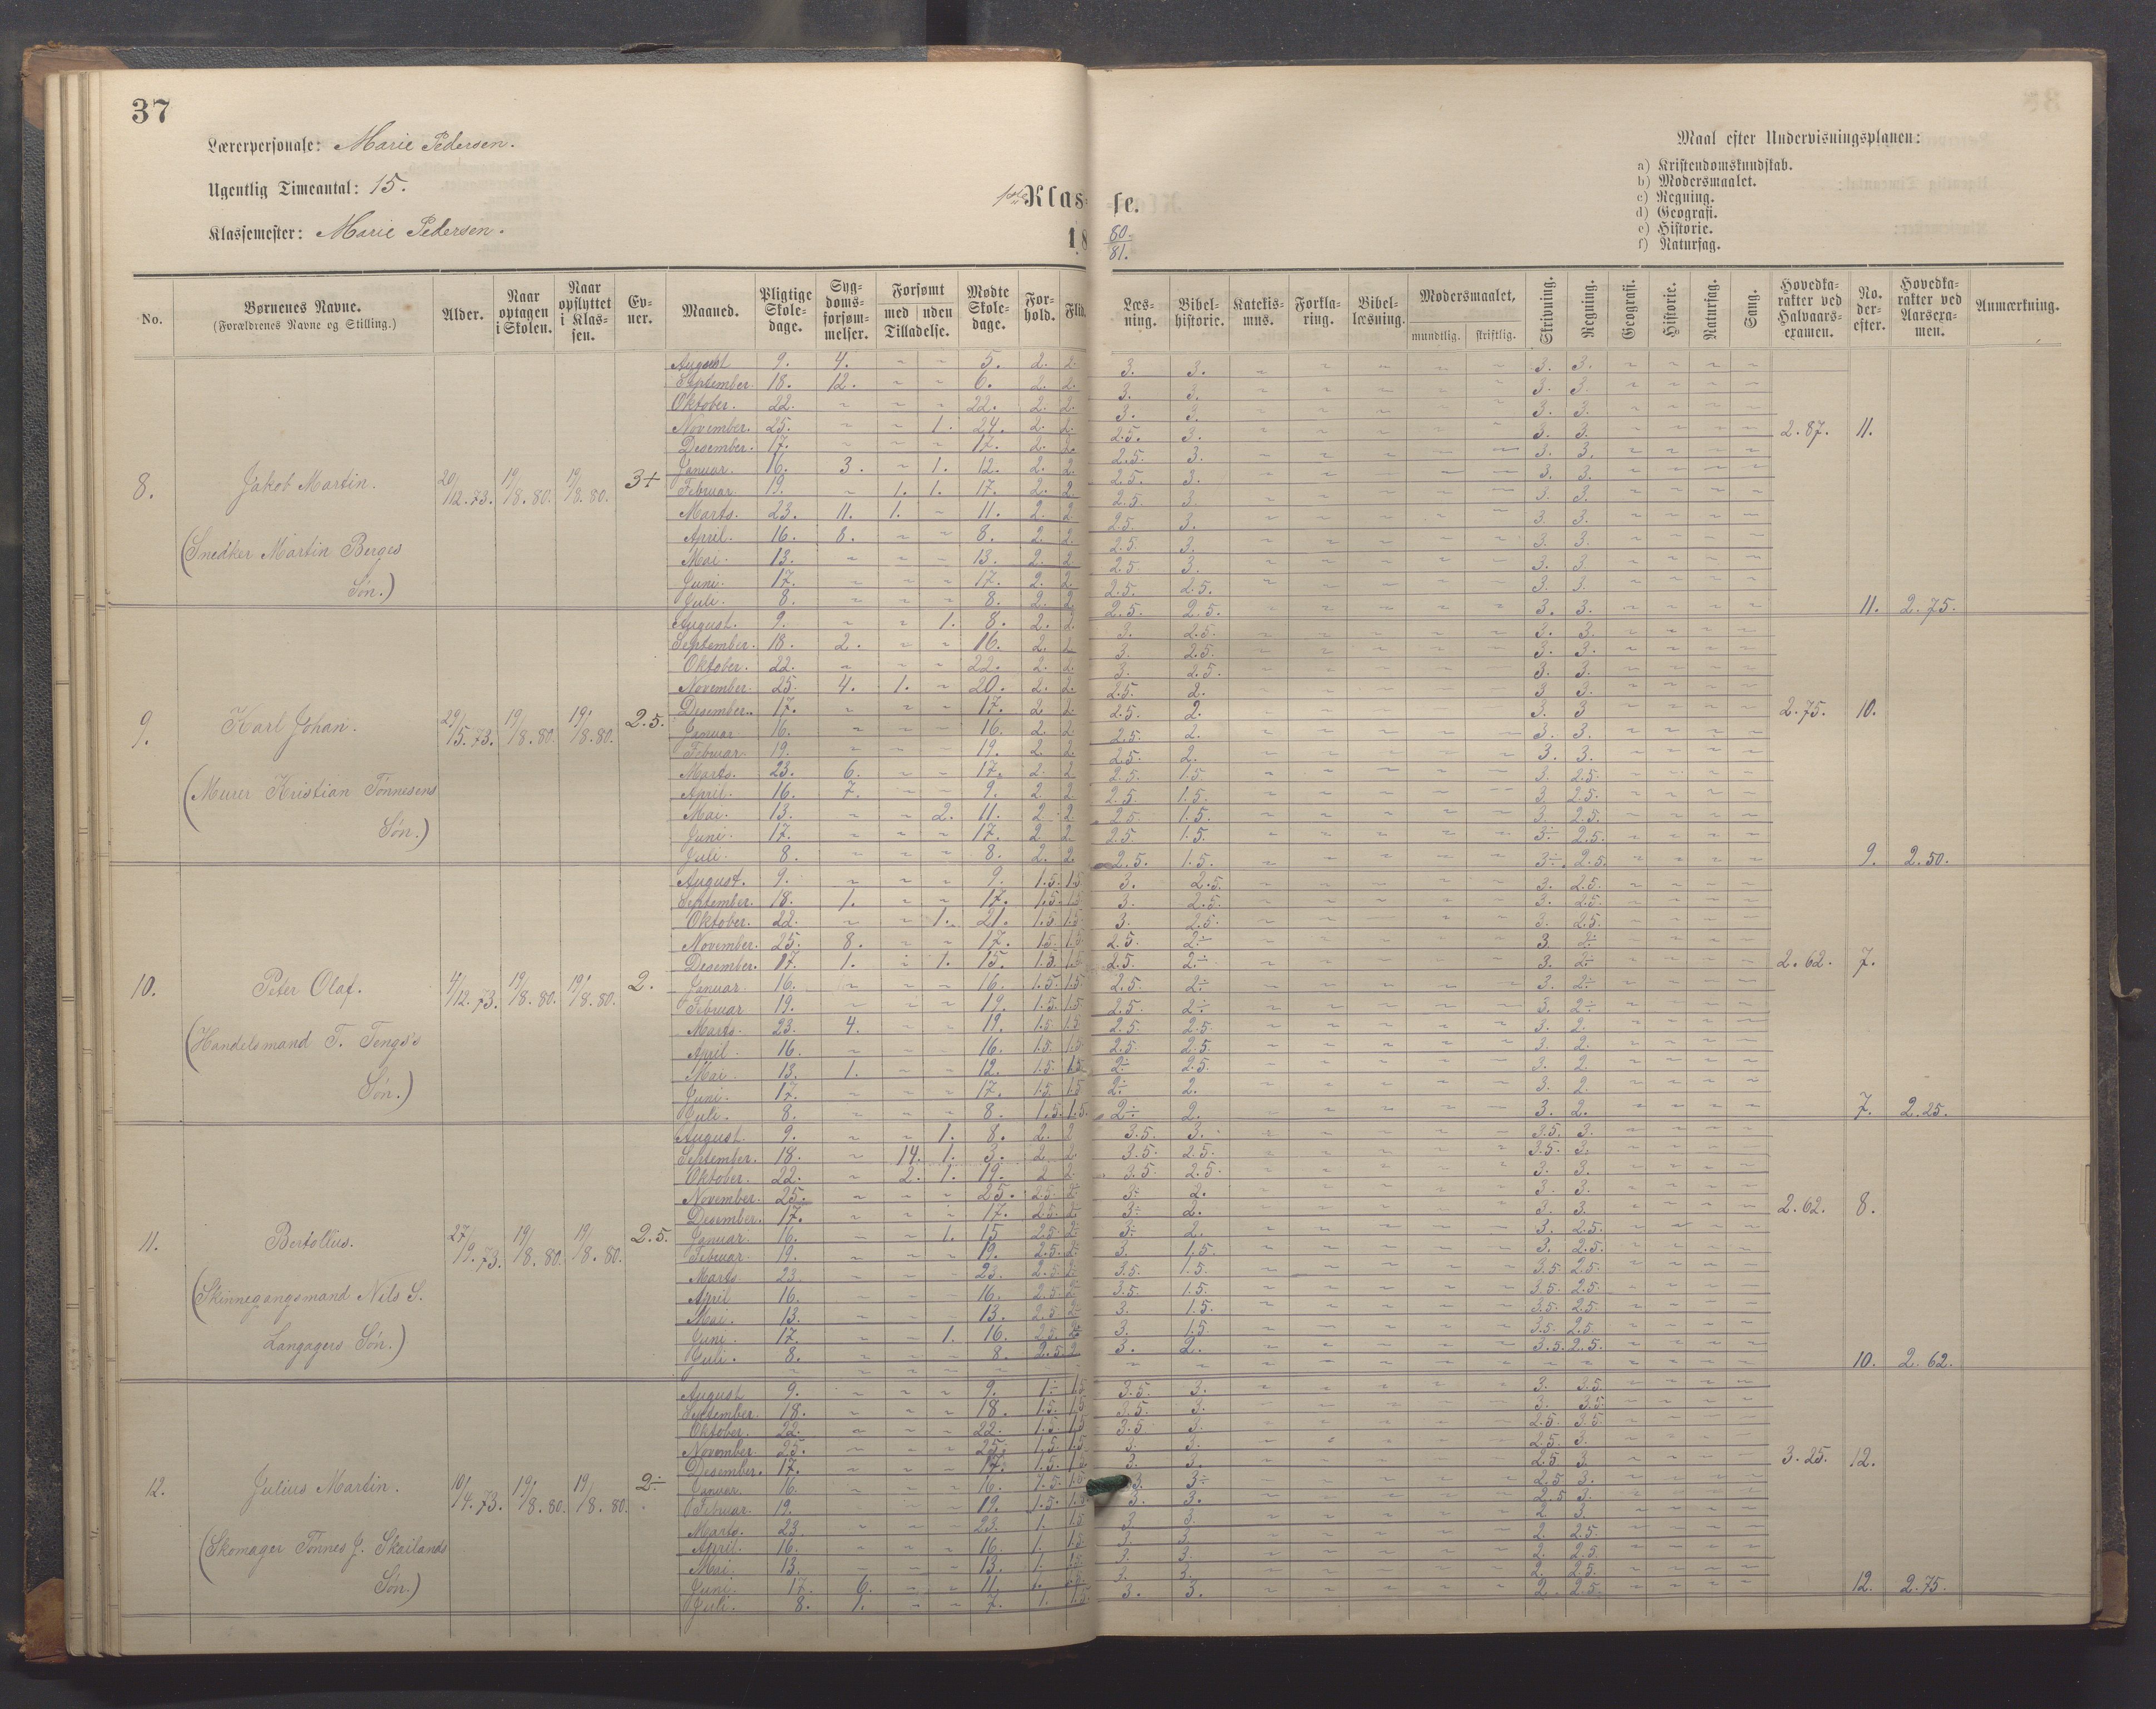 37
Lærerpersonale: Marie Pedersen.
Ugentlig Timeantal: 15.
Klassemester: Marie Pedersen.
1ste Klasse.
18 80/81.
Maal efter Undervisningsplanen:
a) Kristendomskundskab.
b) Modersmaalet.
c) Regning.
d) Geografi.
e) Historie.
f) Naturfag.
No. Børnenes Navne. (Forældrenes Navne og Stilling.) Alder. Naar optagen i Skolen. Naar opflyttet i Klassen. Evner. Maaned. Pligtige Skoledage. Sygdomsforsømmelser. Forsømt med uden Tilladelse. Mødte Skoledage. Forhold. Flid. Læsning. Bibelhistorie. Katekismus. Forklaring. Bibellæsning. Modersmaalet, mundtlig. skriftlig. Skrivning. Regning. Geografi. Historie. Naturfag. Sang. Hovedkarakter ved Halvaarsexamen. No. derefter. Hovedkarakter ved Aarsexamen. Anmærkning.
8. Jakob Martin. 20/12.73. 19/8.80. 19/8.80. 3+
(Snedker Martin Berges
Søn.)
August 9. 4. ~ ~ 5. 2. 2. 3. 3. ~ ~ ~ ~ ~ 3. 3. ~ ~ ~ ~
September. 18. 12. ~ ~ 6. 2. 2. 3. 3. ~ ~ ~ ~ ~ 3. 3. ~ ~ ~ ~
Oktober. 22. ~ ~ ~ 22. 2. 2. 3. 3. ~ ~ ~ ~ ~ 3. 3. ~ ~ ~ ~
November. 25. ~ ~ 1. 24. 2. 2. 2.5. 3. ~ ~ ~ ~ ~ 3. 3. ~ ~ ~ ~ 2.87. 11.
Desember. 17. ~ ~ ~ 17. 2. 2. 2.5. 3. ~ ~ ~ ~ ~ 3. 3. ~ ~ ~ ~
Januar. 16. 3. ~ 1. 12. 2. 2. 2.5. 3. ~ ~ ~ ~ ~ 3. 3. ~ ~ ~ ~
Februar. 19. ~ 1. 1. 17. 2. 2. 2.5. 3. ~ ~ ~ ~ ~ 3. 3. ~ ~ ~ ~
Marts. 23. 11. 1. ~ 11. 2. 2. 2.5. 3. ~ ~ ~ ~ ~ 3. 3. ~ ~ ~ ~
April. 16. 8. ~ ~ 8. 2. 2. 2.5. 3. ~ ~ ~ ~ ~ 3. 3. ~ ~ ~ ~
Mai. 13. ~ ~ ~ 13. 2. 2. 2.5. 3. ~ ~ ~ ~ ~ 3. 3. ~ ~ ~ ~
Juni. 17. ~ ~ ~ 17. 2. 2. 2.5. 2.5. ~ ~ ~ ~ ~ 3. 3. ~ ~ ~ ~
Juli. 8. ~ ~ ~ 8. 2. 2. 2.5. 2.5. ~ ~ ~ ~ ~ 3. 3. ~ ~ ~ ~ 11. 2.75.
9. Karl Johan. 29/5.73. 19/8.80. 19/8.80. 2.5.
(Murer Kristian Tønnesens
Søn.)
August. 9. ~ ~ 1. 8. 2. 2. 3. 2.5. ~ ~ ~ ~ ~ 3. 3. ~ ~ ~ ~
September. 18. 2. ~ ~ 16. 2. 2. 3. 2.5. ~ ~ ~ ~ ~ 3. 3. ~ ~ ~ ~
Oktober. 22. ~ ~ ~ 22. 2. 2. 3. 2.5. ~ ~ ~ ~ ~ 3. 3. ~ ~ ~ ~
November. 25. 4. 1. ~ 20. 2. 2. 2.5. 2. ~ ~ ~ ~ ~ 3 3. ~ ~ ~ ~
Desember. 17. ~ ~ ~ 17. 2 2. 2.5. 2. ~ ~ ~ ~ ~ 3. 3 ~ ~ ~ ~ 2.75. 10.
Januar. 16. ~ ~ ~ 16. 2. 2 2.5. 2. ~ ~ ~ ~ ~ 3. 3. ~ ~ ~ ~
Februar. 19. ~ ~ ~ 19. 2. 2. 2.5. 2. ~ ~ ~ ~ ~ 3. 3. ~ ~ ~ ~
Marts. 23. 6. ~ ~ 17. 2. 2 2.5. 1.5. ~ ~ ~ ~ ~ 3. 2.5. ~ ~ ~ ~
April. 16. 7. ~ ~ 9. 2. 2. 2.5. 1.5. ~ ~ ~ ~ ~ 3. 2.5. ~ ~ ~ ~
Mai. 13. ~ ~ 2. 11. 2 2 2.5. 1.5. ~ ~ ~ ~ ~ 3. 2.5. ~ ~ ~ ~
Juni. 17. ~ ~ ~ 17. 2 2 2.5 1.5. ~ ~ ~ ~ ~ 3÷ 2.5. ~ ~ ~ ~
Juli. 8. ~ ~ ~ 8. 2. 2. 2.5. 1.5. ~ ~ ~ ~ ~ 3÷. 2.5. ~ ~ ~ ~ 9. 2.50.
10. Peter Olaf. 4/12.73. 19/8.80. 19/8.80. 2.
(Handelsmand T. Tengs's
Søn.)
August. 9. ~ ~ ~ 9. 1.5. 1.5 3. 2.5. ~ ~ ~ ~ ~ 3. 2.5. ~ ~ ~ ~
September. 18. 1. ~ ~ 17. 1.5. 1.5 3. 2.5. ~ ~ ~ ~ ~ 3. 2.5. ~ ~ ~ ~
Oktober. 22. ~ ~ 1. 21. 1.5 1.5. 3. 2.5. ~ ~ ~ ~ ~ 3. 2.5 ~ ~ ~ ~
November. 25. 8. ~ ~ 17. 1.5. 1.5. 2.5. 2÷ ~ ~ ~ ~ ~ 3. 2÷ ~ ~ ~ ~
Desember. 17. 1. ~ 1. 15. 1.5. 1.5 2.5. 2÷ ~ ~ ~ ~ ~ 3. 2÷ ~ ~ ~ ~ 2.62. 7.
Januar. 16. ~ ~ ~ 16. 1.5. 1.5. 2.5. 2÷ ~ ~ ~ ~ ~ 3. 2÷ ~ ~ ~ ~
Februar 19. ~ ~ ~ 19. 1.5. 1.5 2.5 2÷ ~ ~ ~ ~ ~ 3. 2÷ ~ ~ ~ ~
Marts. 23. 4. ~ ~ 19. 1.5 1.5 2.5. 2.5 ~ ~ ~ ~ ~ 3. 2. ~ ~ ~ ~
April. 16. ~ ~ ~ 16. 1.5. 1.5 2.5. 2.5. ~ ~ ~ ~ ~ 3. 2. ~ ~ ~ ~
Mai. 13. 1. ~ ~ 12. 1.5. 1.5. 2÷ 2.5. ~ ~ ~ ~ ~ 3. 2 ~ ~ ~ ~
Juni. 17. ~ ~ ~ 17. 1.5 1.5 2÷ 2. ~ ~ ~ ~ ~ 3. 2. ~ ~ ~ ~
Juli. 8. ~ ~ ~ 8. 1.5. 1.5. 2÷ 2. ~ ~ ~ ~ ~ 3. 2. ~ ~ ~ ~ 7. 2.25.
11. Bertolius. 27/9.73. 19/8.80. 19/8.80. 2.5.
(Skinnegangsmand Nils S.
Langagers Søn.)
August. 9. ~ ~ 1. 8. 2. 2 3.5. 3. ~ ~ ~ ~ ~ 3.5. 3. ~ ~ ~ ~
September. 18. ~ 14. 1. 3. 2. 2. 3.5. 2.5. ~ ~ ~ ~ ~ 3.5. 3. ~ ~ ~ ~
Oktober. 22. ~ 2. 1. 19. 2 2 3.5 2.5. ~ ~ ~ ~ ~ 3. 3. ~ ~ ~ ~
November. 25. ~ ~ ~ 25. 2.5. 2÷ 3÷ 2. ~ ~ ~ ~ ~ 3. 3. ~ ~ ~ ~
Desember. 17. ~ ~ ~ 17. 2.5. 2÷ 3÷ 2. ~ ~ ~ ~ ~ 3. 3. ~ ~ ~ ~ 2.62. 8.
Januar. 16. ~ ~ 1. 15 2.5 2÷ 3÷ 2. ~ ~ ~ ~ ~ 3. 2.5. ~ ~ ~ ~
Februar. 19. ~ ~ ~ 19. 2.5. 2÷ 3. 1.5. ~ ~ ~ ~ ~ 3. 2.5. ~ ~ ~ ~
Marts. 23. ~ ~ ~ 23. 2.5 2÷ 3.5. 1.5. ~ ~ ~ ~ ~ 3.5 2.5. ~ ~ ~ ~
April. 16. ~ ~ ~ 16. 2.5 2÷ 3.5. 1.5. ~ ~ ~ ~ ~ 3.5 2.5. ~ ~ ~ ~
Mai. 13. ~ ~ ~ 13. 2.5 2÷ 3. 1.5. ~ ~ ~ ~ ~ 3.5. 2.5. ~ ~ ~ ~
Juni. 17. ~ ~ 1. 16. 2.5. 2÷ 3. 1.5. ~ ~ ~ ~ ~ 3.5. 2.5. ~ ~ ~ ~
Juli. 8. ~ ~ ~ 8. 2.5. 2 3. 2. ~ ~ ~ ~ ~ 3.5. 2.5. ~ ~ ~ ~ 10. 2.62.
12. Julius Martin. 10/4.73. 19/8.80. 19/8.80. 2÷
(Skomager Tønnes J. Skailands
Søn.)
August 9. ~ ~ ~ 9. 1÷ 1.5 3.5. 3. ~ ~ ~ ~ ~ 3. 3.5. ~ ~ ~ ~
September. 18. ~ ~ ~ 18. 1.5. 1.5 3.5. 3. ~ ~ ~ ~ ~ 3. 3.5. ~ ~ ~ ~
Oktober. 22. ~ ~ ~ 22. 1.5 1.5 3.5 3. ~ ~ ~ ~ ~ 2.5. 3.5. ~ ~ ~ ~
November. 25. ~ ~ ~ 25. 1.5. 1.5. 3. 3. ~ ~ ~ ~ ~ 2.5. 3. ~ ~ ~ ~
Desember. 17. ~ ~ ~ 17. 1.5. 1.5. 3. 3. ~ ~ ~ ~ ~ 2.5 3. ~ ~ ~ ~ 3.25. 12.
Januar. 16. ~ ~ ~ 16. 1.5. 1.5 3. 3÷ ~ ~ ~ ~ ~ 2.5 3. ~ ~ ~ ~
Februar. 19. ~ ~ ~ 19. 1.5. 1.5 3. 3. ~ ~ ~ ~ ~ 2.5 3. ~ ~ ~ ~
Marts. 23. ~ ~ ~ 23. 1. 1.5 3. 3. ~ ~ ~ ~ ~ 2 3. ~ ~ ~ ~
April. 16. ~ ~ ~ 16. 1. 1.5 3. 3. ~ ~ ~ ~ ~ 2. 2.5. ~ ~ ~ ~
Mai. 13. ~ ~ ~ 13. 1. 1.5 3. 3. ~ ~ ~ ~ ~ 2. 2.5. ~ ~ ~ ~
Juni. 17. 6. ~ ~ 11. 1. 1.5. 3. 3. ~ ~ ~ ~ ~ 2. 2.5. ~ ~ ~ ~
Juli. 8. 1. ~ ~ 7. 1. 1.5. 3. 3. ~ ~ ~ ~ ~ 2. 2.5. ~ ~ ~ ~ 12. 2.75.